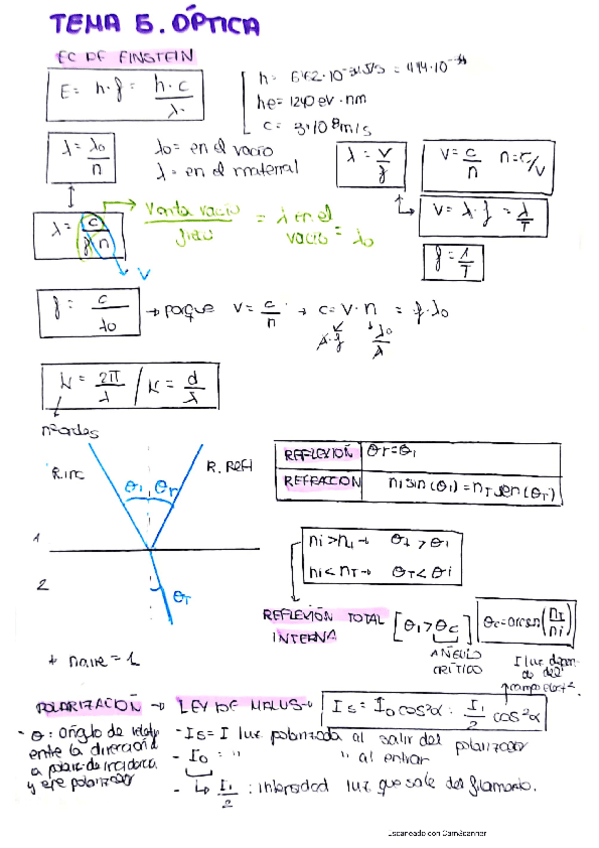 TEMA 5. ÓPTICA
EC DE EINSTEIN
E = h·f = h·c / λ
h =
hc = 1240 eV·nm
c = 3·10^8 m/s
λ = λ0 / n
λ0 = en el vacío
λ = en el material
λ = v / f
v = c / n   n = c/v
λ = c / f n
vacío = λ en el vacío = λ0
v
v = λ·f = λ / T
f = 1 / T
f = c / λ0 → porque v = c / n → c = v·n = f·λ0
λ·f   λ0 / λ
K = 2π / λ / K = d / λ
nº ondas
R. inc
R. Refl
θi θr
1
2
θT
REFLEXIÓN θr = θi
REFRACCIÓN ni sin(θi) = nT sen(θT)
ni < nT → θT < θi
REFLEXIÓN TOTAL INTERNA [θi > θc] θc = arcsen(nT / ni)
ÁNGULO CRÍTICO
I luz depen do del campo eléct
+ naire = 1
POLARIZACIÓN → LEY DE MALUS → Is = I0 cos²α = Ii / 2 cos²α
- θ: ángulo de
entre la dirección
y eje polarizador
- Is = I luz polarizada al salir del polarizador
- I0 = " " al entrar
- ↳ Ii / 2 : intensidad luz que sale del filamento.
Escaneado con CamScanner